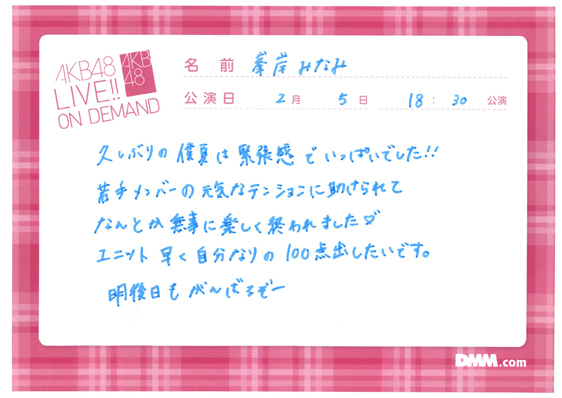 AKB48
LIVE!!
ON DEMAND
AKB
48
名前 峯岸みなみ
公演日 2月 5日 18:30 公演
久しぶりの僕夏は緊張感でいっぱいでした!!
若手メンバーの元気なテンションに助けられて
なんとか無事に楽しく終われました♡
ユニット早く自分なりの100点出したいです。
明後日もがんばるぞー
DMM.com